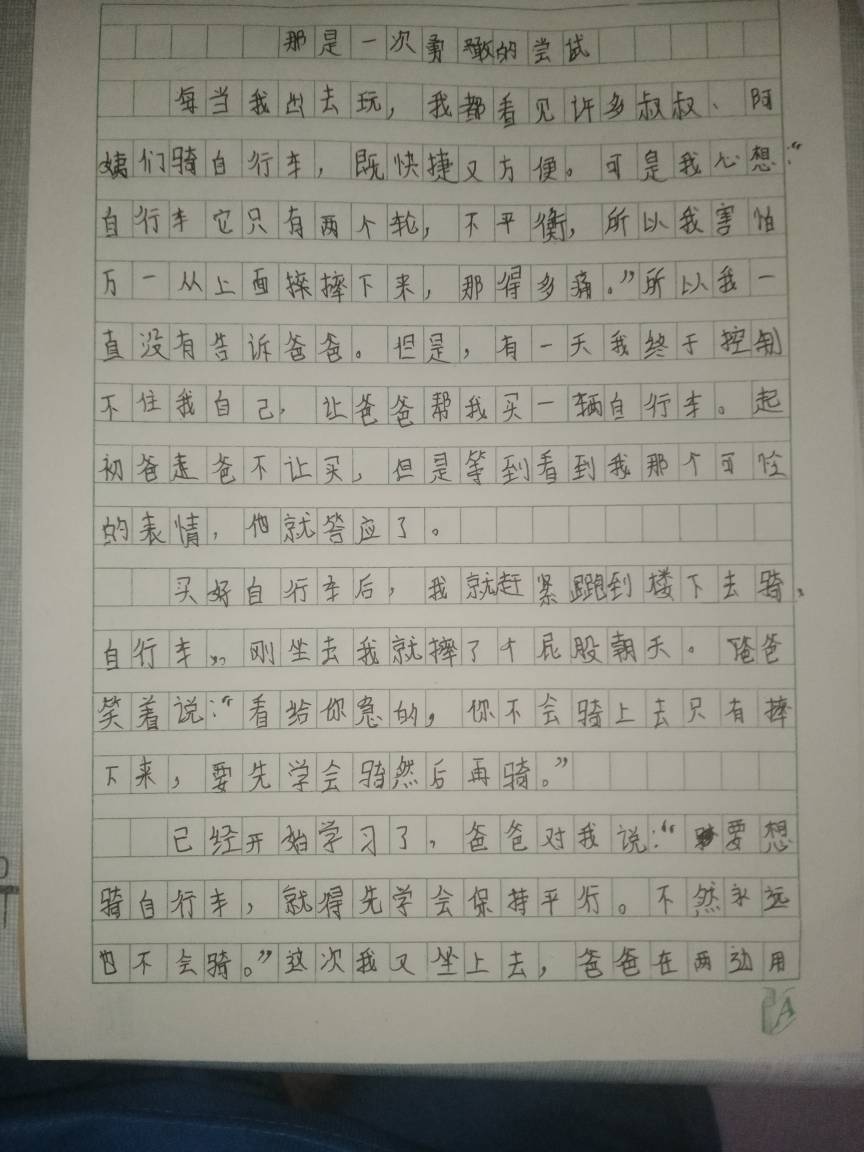 那是一次勇敢的尝试
每当我出去玩，我都看见许多叔叔、阿
姨们骑自行车，既快捷又方便。可是我心想：“
自行车它只有两个轮，不平衡，所以我害怕
万一从上面摔摔下来，那得多痛。”所以我一
直没有告诉爸爸。但是，有一天我终于控制
不住我自己，让爸爸帮我买一辆自行车。起
初爸走爸不让买，但是等到看到我那个可怜
的表情，他就答应了。
买好自行车后，我就赶紧跑到楼下去骑，
自行车，刚坐去我就摔了个屁股朝天。爸爸
笑着说：“看给你急的，你不会骑上去只有摔
下来，要先学会骑然后再骑。”
已经开始学习了，爸爸对我说：“要想
骑自行车，就得先学会保持平行。不然永远
也不会骑。”这次我又坐上去，爸爸在两边用